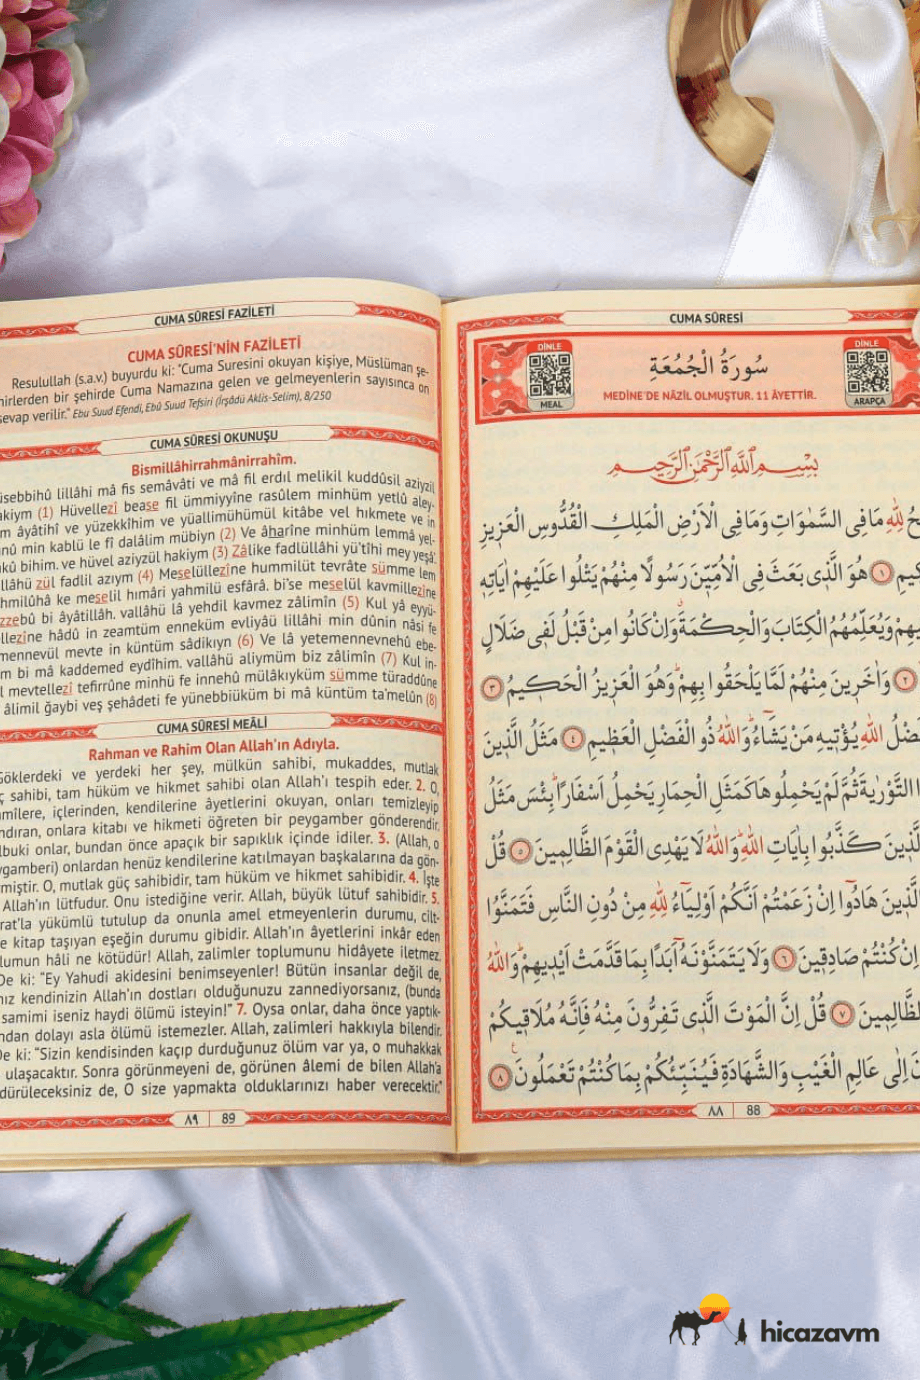 CUMA SÛRESİ FAZİLETİ
CUMA SÛRESİ'NİN FAZİLETİ
Resulullah (s.a.v.) buyurdu ki: "Cuma Suresini okuyan kişiye, Müslüman şe-
hirlerden bir şehirde Cuma Namazına gelen ve gelmeyenlerin sayısınca on
sevap verilir." Ebu Suud Efendi, Ebû Suud Tefsiri (İrşâdü Aklis-Selim), 8/250
CUMA SÛRESİ OKUNUŞU
Bismillâhirrahmânirrahîm.
üsebbihû lillâhi mâ fis semâvâti ve mâ fil erdıl melikil kuddûsil aziyzil
akiym (1) Hüvellezî bease fil ümmiyyîne rasûlem minhüm yetlû aley-
m âyâtihî ve yüzekkîhim ve yüallimühümül kitâbe vel hıkmete ve in
nû min kablü le fî dalâlim mübiyn (2) Ve âharîne minhüm lemmâ yel-
kû bihim. ve hüvel aziyzül hakiym (3) Zâlike fadlüllâhi yü'tîhi mey yeşâ'
llâhü zül fadlil azıym (4) Meselüllezîne hummilüt tevrâte sümme lem
hmilûhâ ke meselil hımâri yahmilü esfârâ. bi'se meselül kavmillezîne
zzebû bi âyâtillâh. vallâhü lâ yehdil kavmez zâlimîn (5) Kul yâ eyyü-
llezîne hâdû in zeamtüm enneküm evliyâü lillâhi min dûnin nâsi fe
mennevül mevte in küntüm sâdikıyn (6) Ve lâ yetemennevnehû ebe-
m bi mâ kaddemed eydîhim. vallâhü aliymüm biz zâlimîn (7) Kul in-
l mevtellezî tefirrûne minhü fe innehû mülâkıyküm sümme türaddûne
âlimil ğaybi veş şehâdeti fe yünebbiüküm bi mâ küntüm ta'melûn (8)
CUMA SÛRESİ MEÂLİ
Rahman ve Rahim Olan Allah'ın Adıyla.
Göklerdeki ve yerdeki her şey, mülkün sahibi, mukaddes, mutlak
ç sahibi, tam hüküm ve hikmet sahibi olan Allah'ı tespih eder. 2. O,
mîlere, içlerinden, kendilerine âyetlerini okuyan, onları temizleyip
ndıran, onlara kitabı ve hikmeti öğreten bir peygamber gönderendir.
lbuki onlar, bundan önce apaçık bir sapıklık içinde idiler. 3. (Allah, o
ygamberi) onlardan henüz kendilerine katılmayan başkalarına da gön-
miştir. O, mutlak güç sahibidir, tam hüküm ve hikmet sahibidir. 4. İşte
Allah'ın lütfudur. Onu istediğine verir. Allah, büyük lütuf sahibidir. 5.
rat'la yükümlü tutulup da onunla amel etmeyenlerin durumu, cilt-
e kitap taşıyan eşeğin durumu gibidir. Allah'ın âyetlerini inkâr eden
lumun hâli ne kötüdür! Allah, zalimler toplumunu hidâyete iletmez.
De ki: "Ey Yahudi akidesini benimseyenler! Bütün insanlar değil de,
nız kendinizin Allah'ın dostları olduğunuzu zannediyorsanız, (bunda
samimi iseniz haydi ölümü isteyin!" 7. Oysa onlar, daha önce yaptık-
ndan dolayı asla ölümü istemezler. Allah, zalimleri hakkıyla bilendir.
De ki: "Sizin kendisinden kaçıp durduğunuz ölüm var ya, o muhakkak
ulaşacaktır. Sonra görünmeyeni de, görünen âlemi de bilen Allah'a
dürüleceksiniz de, O size yapmakta olduklarınızı haber verecektir."
٨٩ 89
CUMA SÛRESİ
DİNLE
MEAL
سُورَةُ الْجُمُعَةِ
MEDİNE'DE NÂZİL OLMUŞTUR. 11 ÂYETTİR.
DİNLE
ARAPÇA
بِسْمِ اللّٰهِ الرَّحْمٰنِ الرَّحِيمِ
حُ لِلّٰهِ مَا فِى السَّمٰوَاتِ وَمَا فِى الْاَرْضِ الْمَلِكِ الْقُدُّوسِ الْعَزِيزِ
كِيمِ ١ هُوَ الَّذِى بَعَثَ فِى الْاُمِّيّ۪نَ رَسُولًا مِنْهُمْ يَتْلُوا عَلَيْهِمْ اٰيَاتِهِ
يهِمْ وَيُعَلِّمُهُمُ الْكِتَابَ وَالْحِكْمَةَ وَاِنْ كَانُوا مِنْ قَبْلُ لَفِى ضَلَالٍ
٢ وَاٰخَرِينَ مِنْهُمْ لَمَّا يَلْحَقُوا بِهِمْ وَهُوَ الْعَزِيزُ الْحَكِيمُ ٣
ضْلُ اللّٰهِ يُؤْتِيهِ مَنْ يَشَاءُ وَاللّٰهُ ذُو الْفَضْلِ الْعَظِيمِ ٤ مَثَلُ الَّذِينَ
ا التَّوْرٰيةَ ثُمَّ لَمْ يَحْمِلُوهَا كَمَثَلِ الْحِمَارِ يَحْمِلُ اَسْفَارًا بِئْسَ مَثَلُ
لَّذِينَ كَذَّبُوا بِاٰيَاتِ اللّٰهِ وَاللّٰهُ لَا يَهْدِى الْقَوْمَ الظَّالِمِينَ ٥ قُلْ
لَّذِينَ هَادُوا اِنْ زَعَمْتُمْ اَنَّكُمْ اَوْلِيَاءُ لِلّٰهِ مِنْ دُونِ النَّاسِ فَتَمَنَّوُا
اِنْ كُنْتُمْ صَادِقِينَ ٦ وَلَا يَتَمَنَّوْنَهُ اَبَدًا بِمَا قَدَّمَتْ اَيْدِيهِمْ وَاللّٰهُ
لظَّالِمِينَ ٧ قُلْ اِنَّ الْمَوْتَ الَّذِى تَفِرُّونَ مِنْهُ فَاِنَّهُ مُلَاقِيكُمْ
نَ اِلٰى عَالِمِ الْغَيْبِ وَالشَّهَادَةِ فَيُنَبِّئُكُمْ بِمَا كُنْتُمْ تَعْمَلُونَ ٨
٨٨ 88
hicazavm